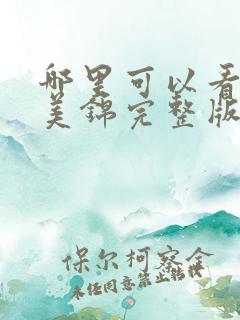 哪里可以看
美锦完整版
保尔柯察金
未任同意禁止转载